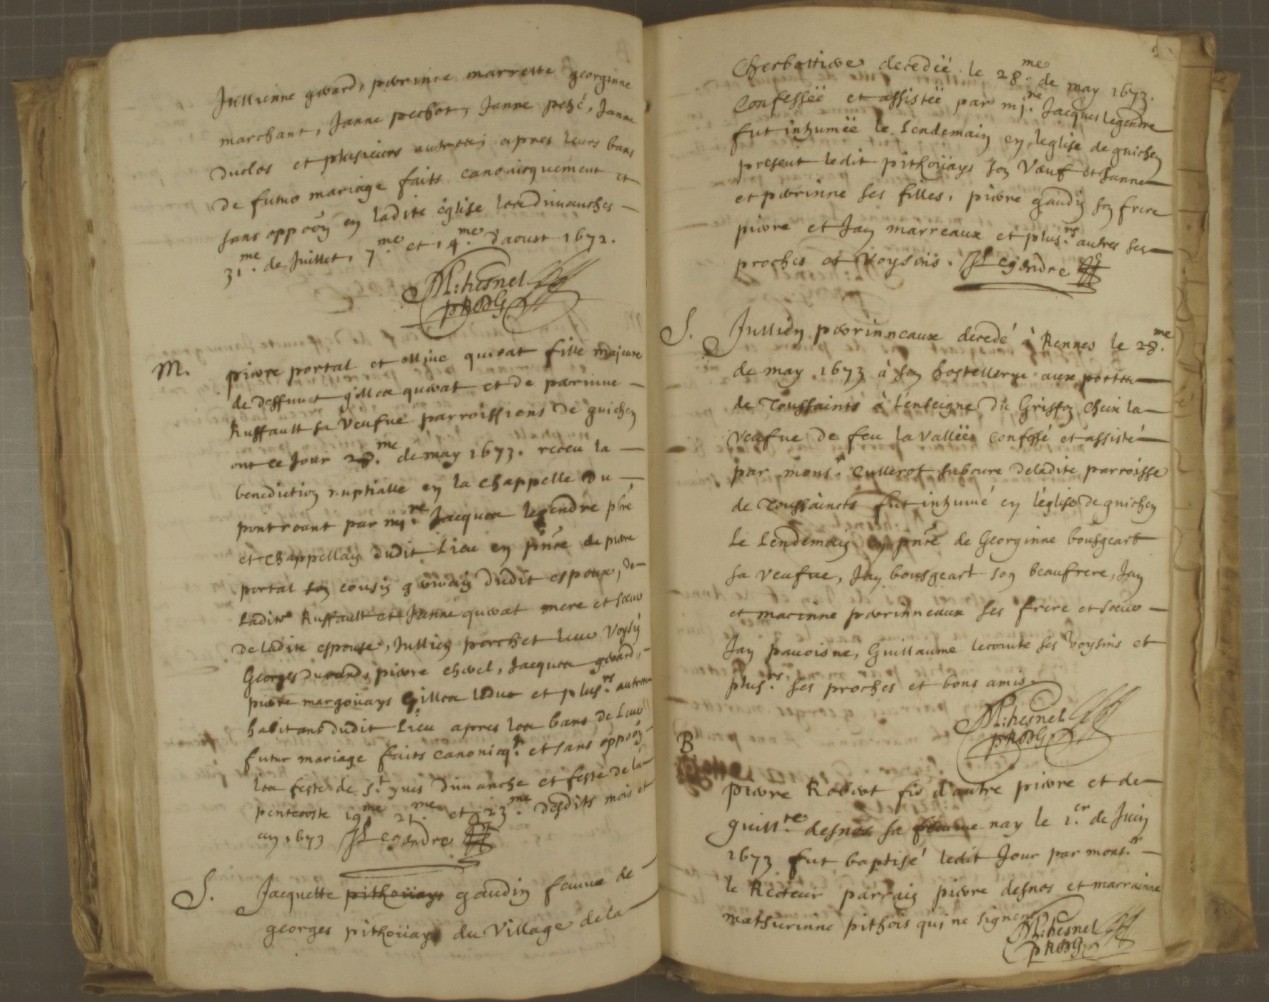 Jullienne gerard, perrinne marrette georginne
marchant, Janne pechot, Janne pezé, Janne
Duclos et plusieurs autres, apres leurs bans
de futur mariage faits canonicquement et
sans oppoōn en ladite église les dimanches
31.me de Juillet, 7.me et 14.me d'aoust 1672.
M: hesnel
pRBDG
M.
pierre portal et ollive quivat fille majeure
de deffunct gilles quivat et de perrinne
Ruffault sa veufve parroissiens de guichen
ont ce jour 28.me de may 1673. receu la
benediction nuptialle en la chappelle du
pontreant par mi.re Jacques legendre pbre
et chappellain dudit Lieu en pnce de pierre
portal son cousin germain dudit espoux, de
Ladite Ruffault et Janne quivat mere et sœur
de ladite espouse, Jullien porchet leur voysin
Georges durand, pierre chevel, Jacques gerard,
pierre margouays Gilles leduc et plus.rs autres
habitans dudit Lieu apres les bans de Leur
futur mariage faits canonicq.t et sans oppoōn
les festes de S.t yves Dimanche et feste de la
pentecoste 19.me 21.me et 23.me desdits mois et
an 1673 J Legendre
S.
Jacquette pithoüays gaudin femme de
georges pithoüays du Village de la
Cherbottiere decedéé le 28.me de may 1673.
Confesséé et assistéé par mi.re Jacques legendre
fut inhuméé le Lendemain en l'eglise de guichen
present ledit pithoüays son Veuf et Janne
et perrinne ses filles, pierre gaudin son frere
pierre et Jan marreaux et plus.rs autres ses
proches et Voysins. J Legendre
S.
Jullien perrinneaux decedé à Rennes le 28.me
de may 1673 à son hostellerye aux portes
de Toussaints à l'enseigne du Griffon cheix la
veufve de feu la Valléé confessé et assisté
par mons.r Cullerot subcuré de ladite parroisse
de Toussaincts fut inhumé en l'église de guichen
Le Lendemain en pnce de Georginne bousgeart
sa veufve, Jan bousgeart son beaufrere, Jan
et macinne perrinneaux ses frere et sœur
Jan pavoisne, Guillaume lecomte ses Voysins et
plus.rs ses proches et bons amis.
M: hesnel
pRBDG
B
pierre Robert fis d'autre pierre et de
guill.te desnos sa femme nay le 1.er de Juin
1673 fut baptisé ledit Jour par mons.r
le Recteur parrain pierre desnos et marrainne
mathurinne pithois qui ne signent
M: hesnel
pRBDG